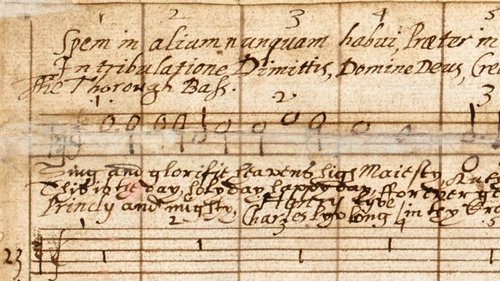 1 2 3 4 5
Spem in alium nunquam habui, Præter in
In tribulatione Dimittis, Domine Deus, Cre
The Thorough Bass.
1 2 3
Sing and glorifie heavens high Maiesty,
This is the day, holy day happy day, ffor ever
Princly and mighty, Henry lyve
Charles lyve long in thy
1 2 3 4
23